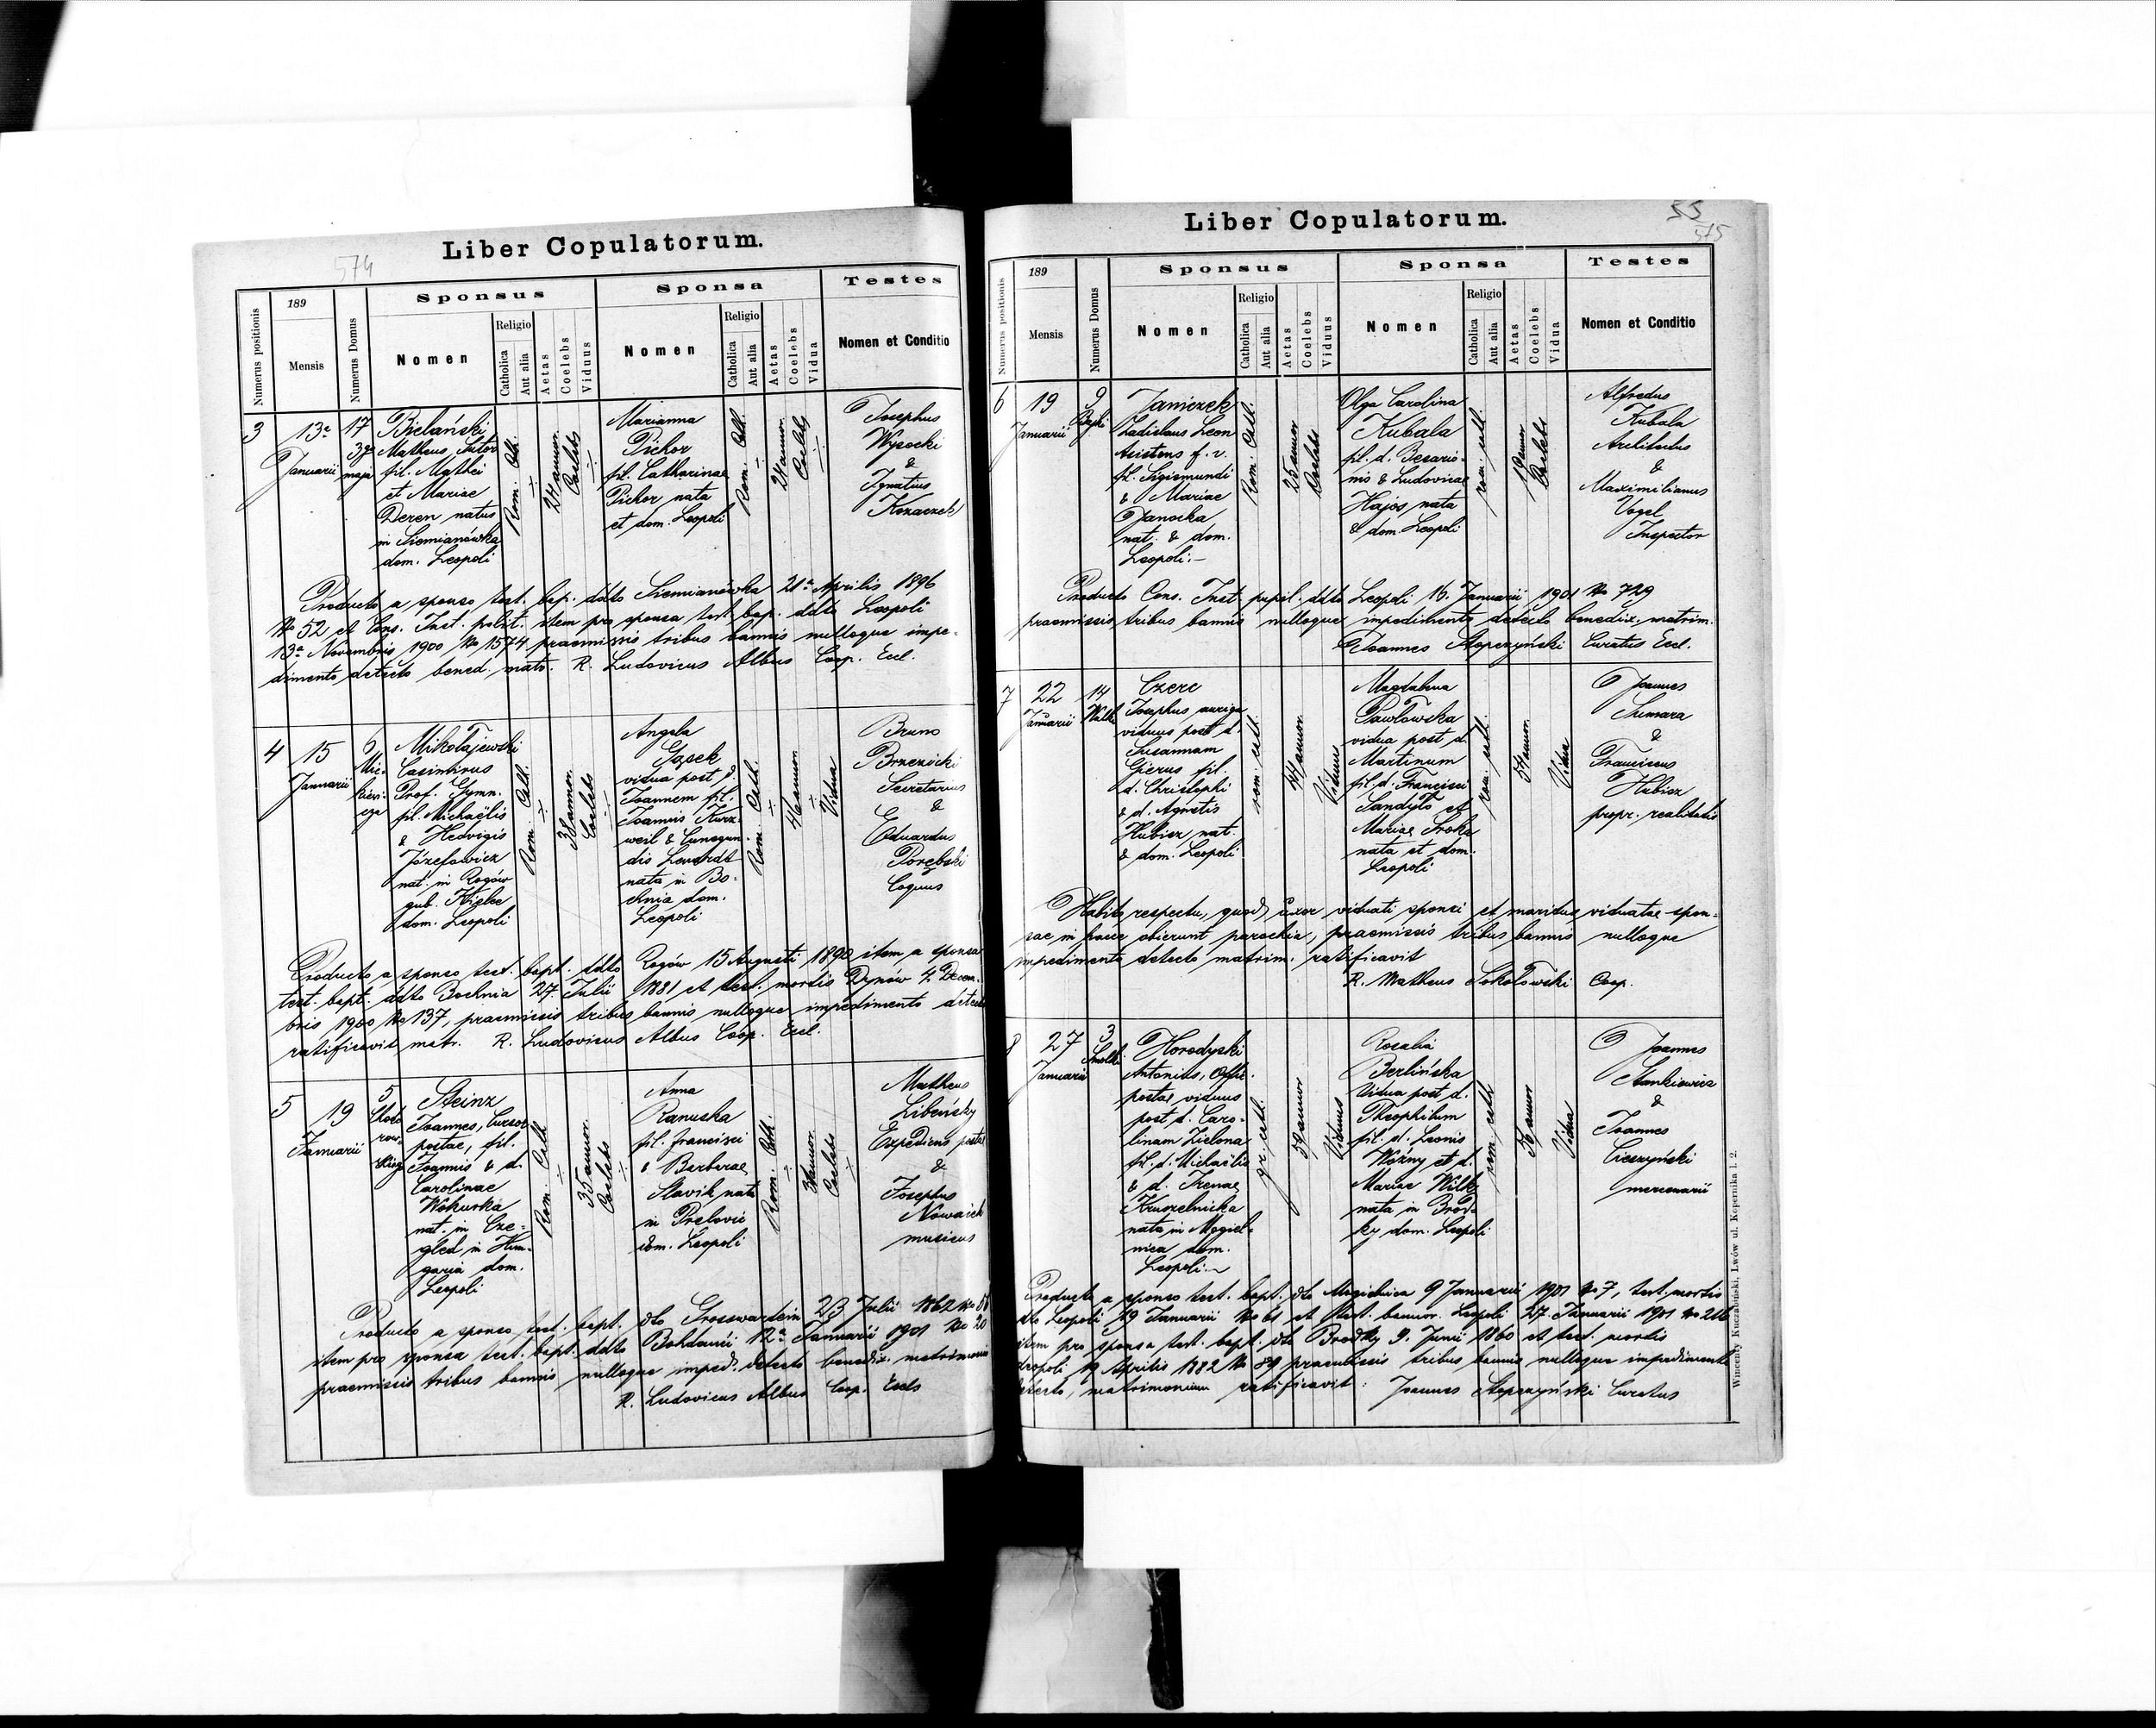 574
Liber Copulatorum.
Numerus positionis
189
Mensis
Numerus Domus
Sponsus
Nomen
Religio
Catholica
Aut alia
Aetas
Coelebs
Viduus
Sponsa
Nomen
Religio
Catholica
Aut alia
Aetas
Coelebs
Vidua
Testes
Nomen et Conditio
3
13a
Januarii
17
3go
maja
Bielański
Matheus Sutor
fil. Mathei
et Mariae
Deren natus
in Siemianówka
dom. Leopoli
Rom. Cth.
24 annor.
Coelebs
Marianna
Pichor
fil. Catharinae
Pichor nata
et dom. Leopoli
Rom. Cath.
24 annor.
Coelebs
Josephus
Wysocki
&
Ignatius
Kozaczek
Producto a sponso test. bap. ddto Siemianówka 21a Aprilis 1896
No 52 et Cons. Inst. polit. item pro sponsa test. bap. ddto Leopoli
13a Novembris 1900 No 1574 praemissis tribus bannis nulloque impe-
dimento detecto bened. matr. R. Ludovicus Albus Coop. Eccl.
4
15
Januarii
6
Mic-
kiewi-
cza
Mikołajewski
Casimirus
Prof. Gymn.
fil. Michaëlis
& Hedvigis
Józefowicz
nat. in Rogów
gub. Kielce
dom. Leopoli
Rom. Cath.
38 annor.
Coelebs
Angela
vidua post d.
Joannem fil.
Joannis Kurz-
weil & Cunegun-
dis
nata in Bo-
chnia dom.
Leopoli
Rom. Cath.
46 annor.
Vidua
Bruno
Brzezicki
Secretarius
&
Eduardus
Porębski
Coquus
Producto a sponso test. bapt. ddto Rogów 15 Augusti 1890 item a sponsa
test. bapt. ddto Bochnia 27. Julii 1881 et test. mortis Dynów 4. Decem-
bris 1900 No 137, praemissis tribus bannis nulloque impedimento detecto
ratificavit matr. R. Ludovicus Albus Coop. Eccl.
5
19
Januarii
5
Steinz
Joannes, Cursor
postae, fil.
Joannis & d.
Carolinae
Wokurka
nat. in Cze-
gled in Hun-
garia dom.
Leopoli
Rom. Cath.
35 annor.
Coelebs
Anna
Ranuska
fil. Francisci
& Barbarae
Slavik nata
in Prelovic
dom. Leopoli
Rom. Cath.
annor.
Coelebs
Matheus
Libeńsky
Expediens postae
&
Josephus
musicus
Producto a sponso test. bapt. dto Grosswardein 23 Julii 1862 No
item pro sponsa test. bapt. ddto 12a Januarii 1901 No 20
praemissis tribus bannis nulloque imped. detecto benedix. matrimonium
R. Ludovicus Albus Coop. Eccls
55
575
Liber Copulatorum.
Numerus positionis
189
Mensis
Numerus Domus
Sponsus
Nomen
Religio
Catholica
Aut alia
Aetas
Coelebs
Viduus
Sponsa
Nomen
Religio
Catholica
Aut alia
Aetas
Coelebs
Vidua
Testes
Nomen et Conditio
6
19
Januarii
9
Janiczek
Ladislaus Leon
Asistens f. v.
fil. Sigismundi
& Mariae
Janocka
nat. & dom.
Leopoli.-
Rom. Cath.
25 annor
Coelebs
Olga Carolina
Kubala
fil. d. Besario-
nis & Ludovicae
Hajos nata
& dom. Leopoli
rom. cath.
19 annor
Coelebs
Alfredus
Kubala
Architectus
&
Maximilianus
Vogel
Inspector
Producto Cons. Inst. pupil. ddto Leopoli 16. Januarii 1901 No 729
praemissis tribus bannis nulloque impedimento detecto benedix. matrim.
Joannes Stopczyński Curatus Eccl.
7
22
Januarii
14
Czerc
Josephus auriga
viduus post d.
Susannam
Gierus fil.
d. Christophi
& d. Agnetis
Hubisz nat.
& dom. Leopoli
rom. cath.
annor
Viduus
Magdalena
Pawłowska
vidua post d.
Martinum
fil. d. Francisci
Sandyło et
Mariae Sroka
nata et dom.
Leopoli
rom. cath.
54 annor.
Vidua
Joannes
Sumara
&
Franciscus
Hubisz
propr. realitatis
Habito respectu, quod uxor viduati sponsi et maritus viduatae spon-
sae in hacce obierunt parochia, praemissis tribus bannis nulloque
impedimento detecto matrim. ratificavit
R. Matheus Sokołowski Coop.
8
27
Januarii
3
Smolki
Horodyski
Antonius, Offic.
postae viduus
post d. Caro-
linam Zielona
fil. d. Michaëlis
& d. Irenae
Kruszelnicka
nata in Mogiel-
nica dom.
Leopoli.
gr. cath.
59 annor
Viduus
Rosalia
Berlińska
Vidua post d.
Theophilum
fil. d. Leonis
Woźny et d.
Mariae Wilk
nata in Brod-
ky dom. Leopoli
rom. cath
annor
Vidua
Joannes
Stankiewicz
&
Joannes
Cieszyński
mercenarii
Producto a sponso test. bapt. dto Mogielnica 9 Januarii 1901 No 7, test. mortis
dto Leopoli 19 Januarii No 61 et test. bannor. Leopoli 27 Januarii 1901 No 216
item pro sponsa test. bapt. dto Brodky 9. Junii 1860 et test. mortis
Leopoli 19 Aprilis 1882 No 89 praemissis tribus bannis nulloque impedimento
detecto, matrimonium ratificavit: Joannes Stopczyński Curatus
Wincenty Kuczabiński, Lwów ul. Kopernika l. 2.